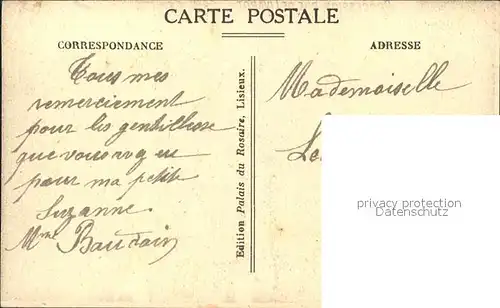 CARTE POSTALE
CORRESPONDANCE
ADRESSE
Tous mes
remerciement
pour les gentillesse
que vous avez eu
pour ma petite
Suzanne.
Mme Baudain
Edition Palais du Rosaire, Lisieux.
Mademoiselle
privacy protection
Datenschutz